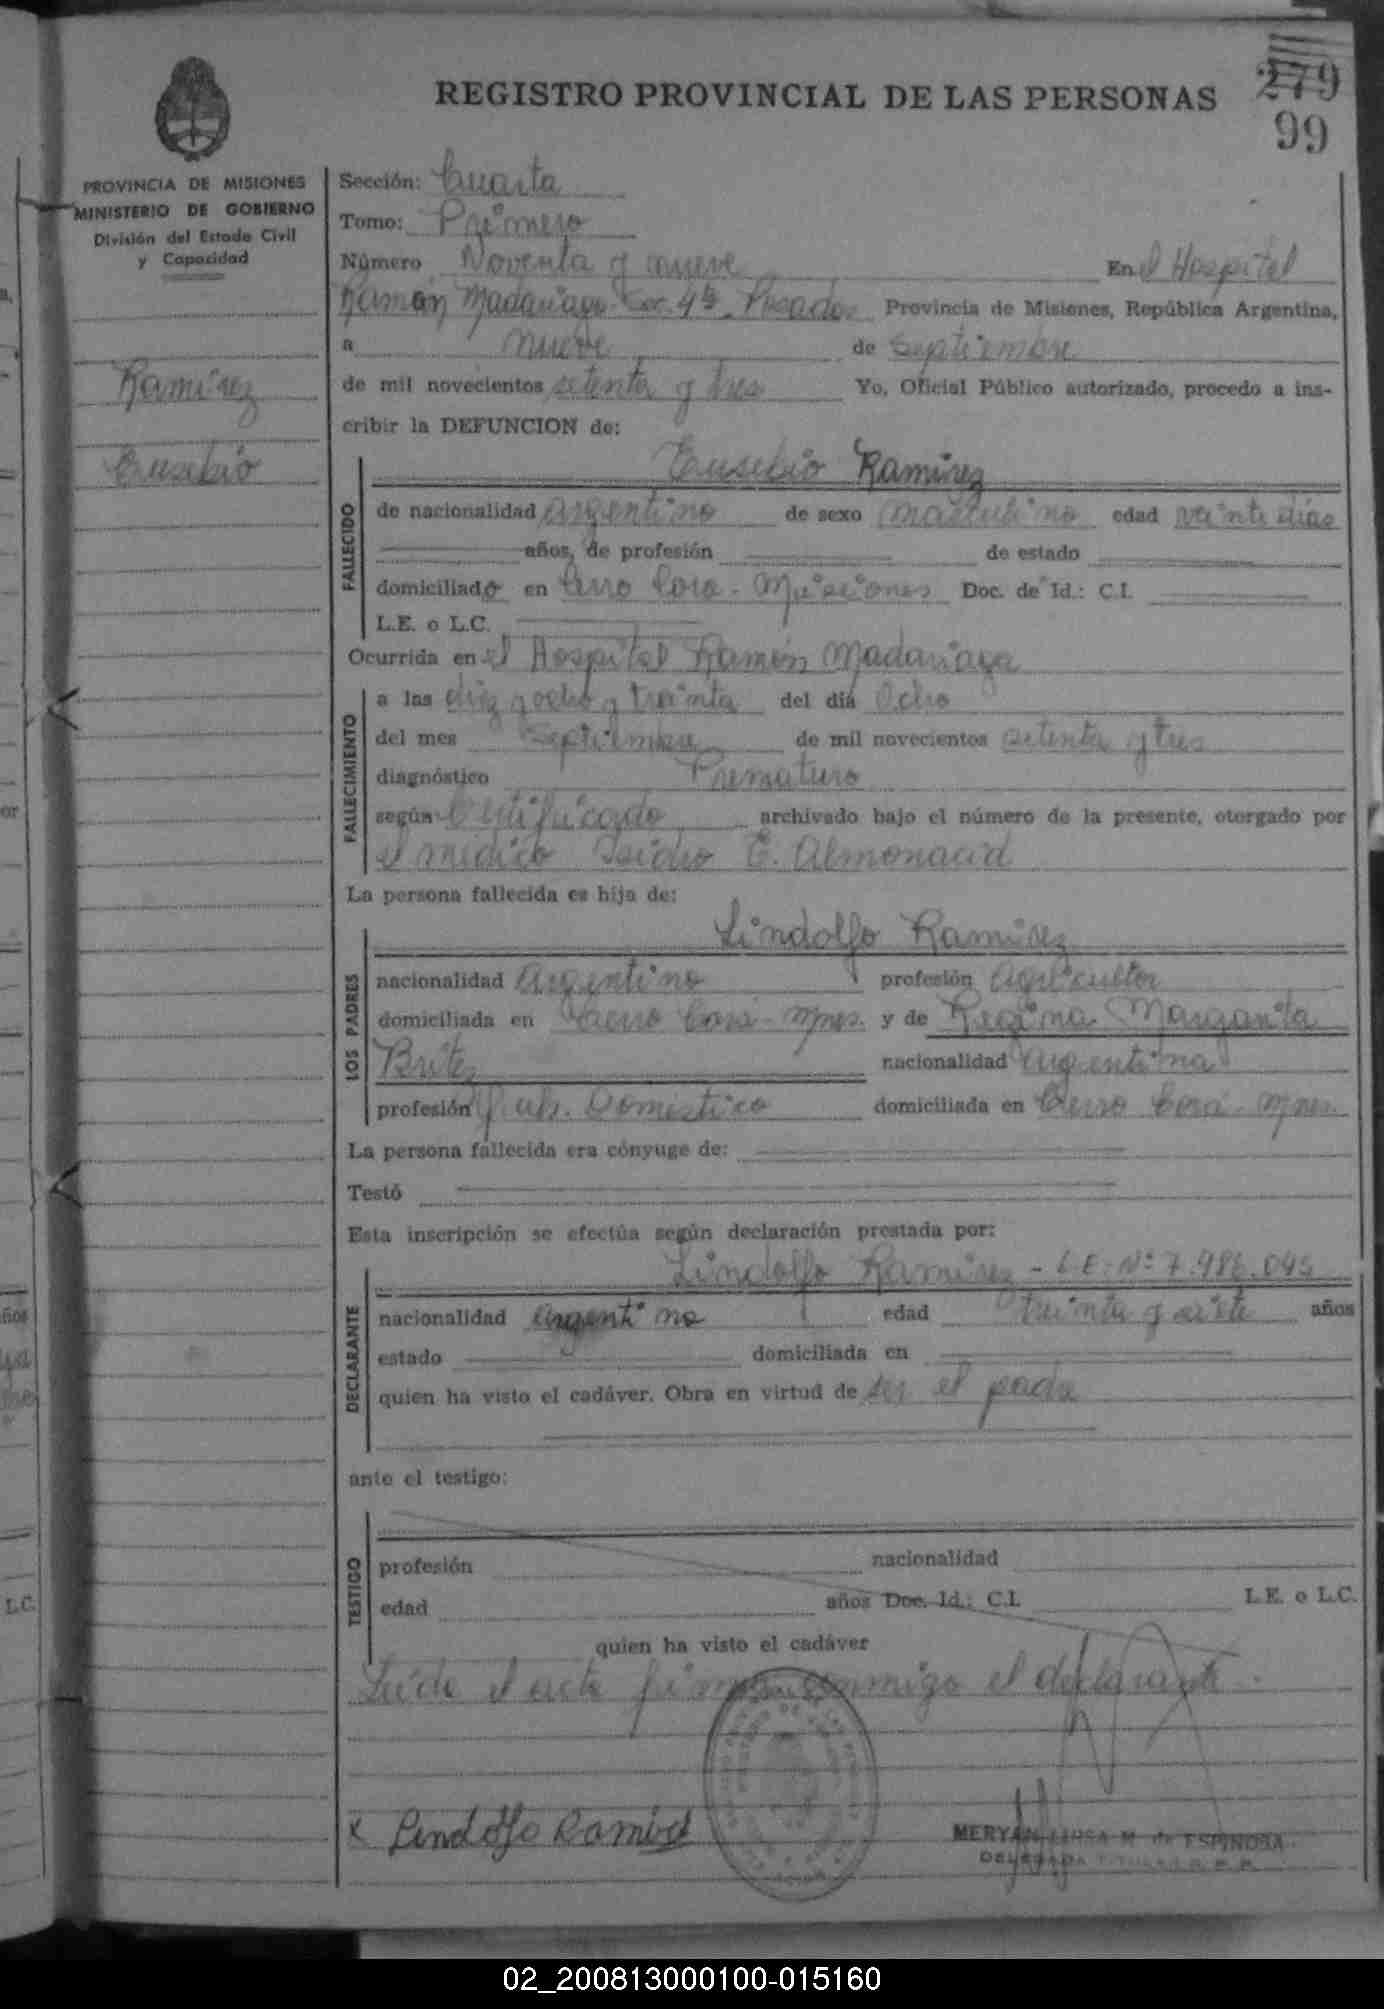 REGISTRO PROVINCIAL DE LAS PERSONAS
279
99
PROVINCIA DE MISIONES
MINISTERIO DE GOBIERNO
División del Estado Civil
y Capacidad
Ramírez
Eusebio
Sección: Cuarta
Tomo: Primero
Número Noventa y nueve En el Hospital
Ramón Madariaga Sec. 4ta Posadas Provincia de Misiones, República Argentina,
a nueve de Septiembre
de mil novecientos setenta y tres Yo, Oficial Público autorizado, procedo a ins-
cribir la DEFUNCION de:
Eusebio Ramirez
FALLECIDO
de nacionalidad argentino de sexo masculino edad veinte dias
años, de profesión de estado
domiciliado en Cerro Cora - Misiones Doc. de Id.: C.I.
L.E. o L.C.
Ocurrida en el Hospital Ramón Madariaga
FALLECIMIENTO
a las diez y ocho y treinta del día Ocho
del mes Septiembre de mil novecientos setenta y tres
diagnóstico Prematuro
según Certificado archivado bajo el número de la presente, otorgado por
el medico Isidro E. Almonacid
La persona fallecida es hija de:
Lindolfo Ramirez
LOS PADRES
nacionalidad Argentino profesión agricultor
domiciliada en Cerro Corá - Mnes. y de Regina Margarita
Britez nacionalidad argentina
profesión Queh. Domestico domiciliada en Cerro Corá - Mnes.
La persona fallecida era cónyuge de:
Testó
Esta inscripción se efectúa según declaración prestada por:
Lindolfo Ramirez - L.E. Nº 7.486.045
DECLARANTE
nacionalidad argentino edad treinta y siete años
estado domiciliada en
quien ha visto el cadáver. Obra en virtud de ser el padre
ante el testigo:
TESTIGO
profesión nacionalidad
edad años Doc. Id.: C.I. L.E. o L.C.
quien ha visto el cadáver
Leida el acta firma conmigo el declarante.
x Lindolfo Ramirez
MERYAN LUISA M. de ESPINOSA
DELEGADA TITULAR
02_200813000100-015160